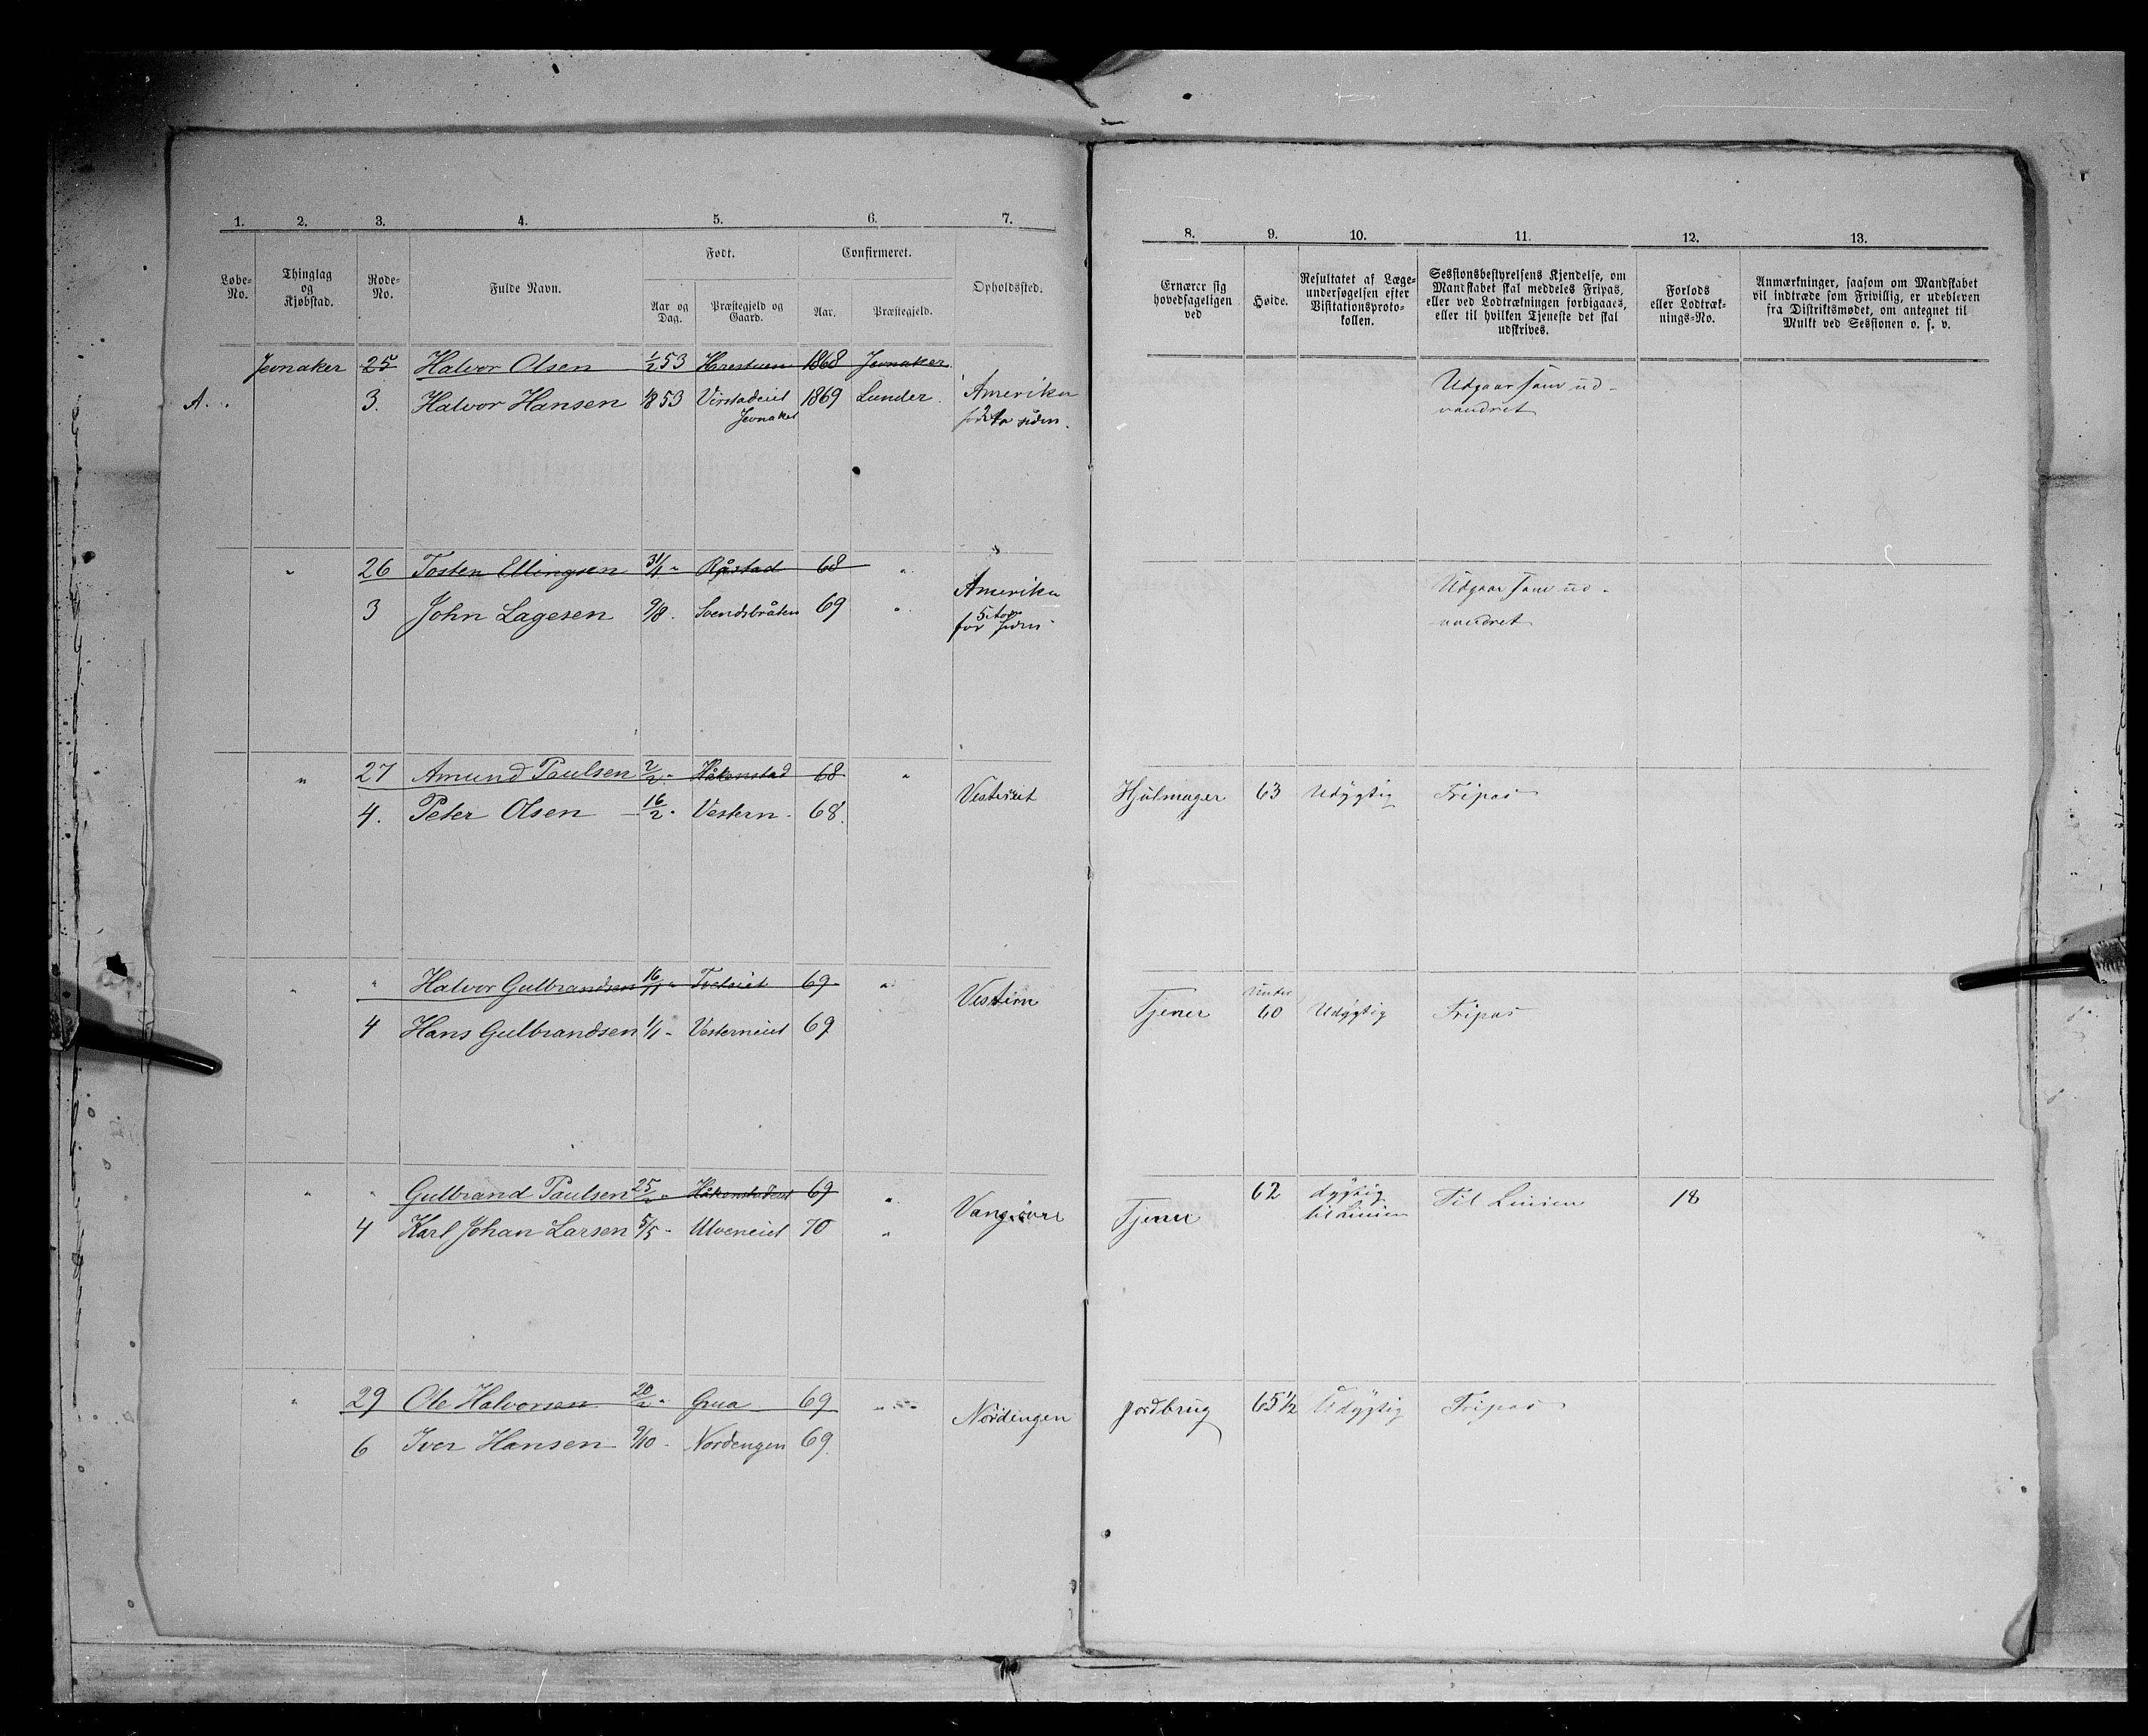 1. 2. 3. 4. 5. 6. 7.
Løbe-No. Thinglag og Kjøbstad. Rode-No. Fulde Navn. Født. Confirmeret. Opholdssted.
Aar og Dag. Præstegjeld og Gaard. Aar. Præstegjeld.
8. 9. 10. 11. 12. 13.
Ernærer sig hovedsageligen ved
Høide.
Resultatet af Læge-undersøgelsen efter Visitationsproto-kollen.
Sessionsbestyrelsens Kjendelse, om Mandskabet skal meddeles Fripas, eller ved Lodtrækningen forbigaaes, eller til hvilken Tjeneste det skal udskrives.
Forlods eller Lodtræk-nings-No.
Anmærkninger, saasom om Mandskabet vil indtræde som Frivillig, er udebleven fra Distriktsmødet, om antegnet til Mulkt ved Sessionen o. s. v.
Jevnaker 25 Halvor Olsen 1/2 53 Harestuen 1868 Jevnaker
A. 3. Halvor Hansen 1/8 53 Virstadeiet Jevnaker 1869 Lunder. Amerika for 2 Aar siden. Udgaar som ud-vandret
" 26 Tosten Ellingsen 31/1 " Råstad 68 "
3 John Lagesen 9/8 . Svendsbråten 69 " Amerika for 5 Aar siden Udgaar som ud-vandret
" 27 Amund Paulsen 2/2 " Håkenstad 68 "
4. Peter Olsen 16/2 " Vestern 68. Vesteriet Hjulmager 63 Udygtig Fripas
" " Halvor Gulbrandsen 16/1 " Tveteiet 69 "
4 Hans Gulbrandsen 1/1 " Vesterneiet 69 Vestern Tjener Under 60 Udygtig Fripas
" " Gulbrand Paulsen 25/2 " Håkenstadeiet 69 "
4 Karl Johan Larsen 5/5 " Ulveneiet 70 " Tjener 62 dygtig til Linien Til Linien 18
" 29 Ole Halvorsen 20/2 " Grua 69 "
6 Iver Hansen 9/10 " Nordengen 69. Nordengen Jordbrug 65 1/2 Udygtig Fripas